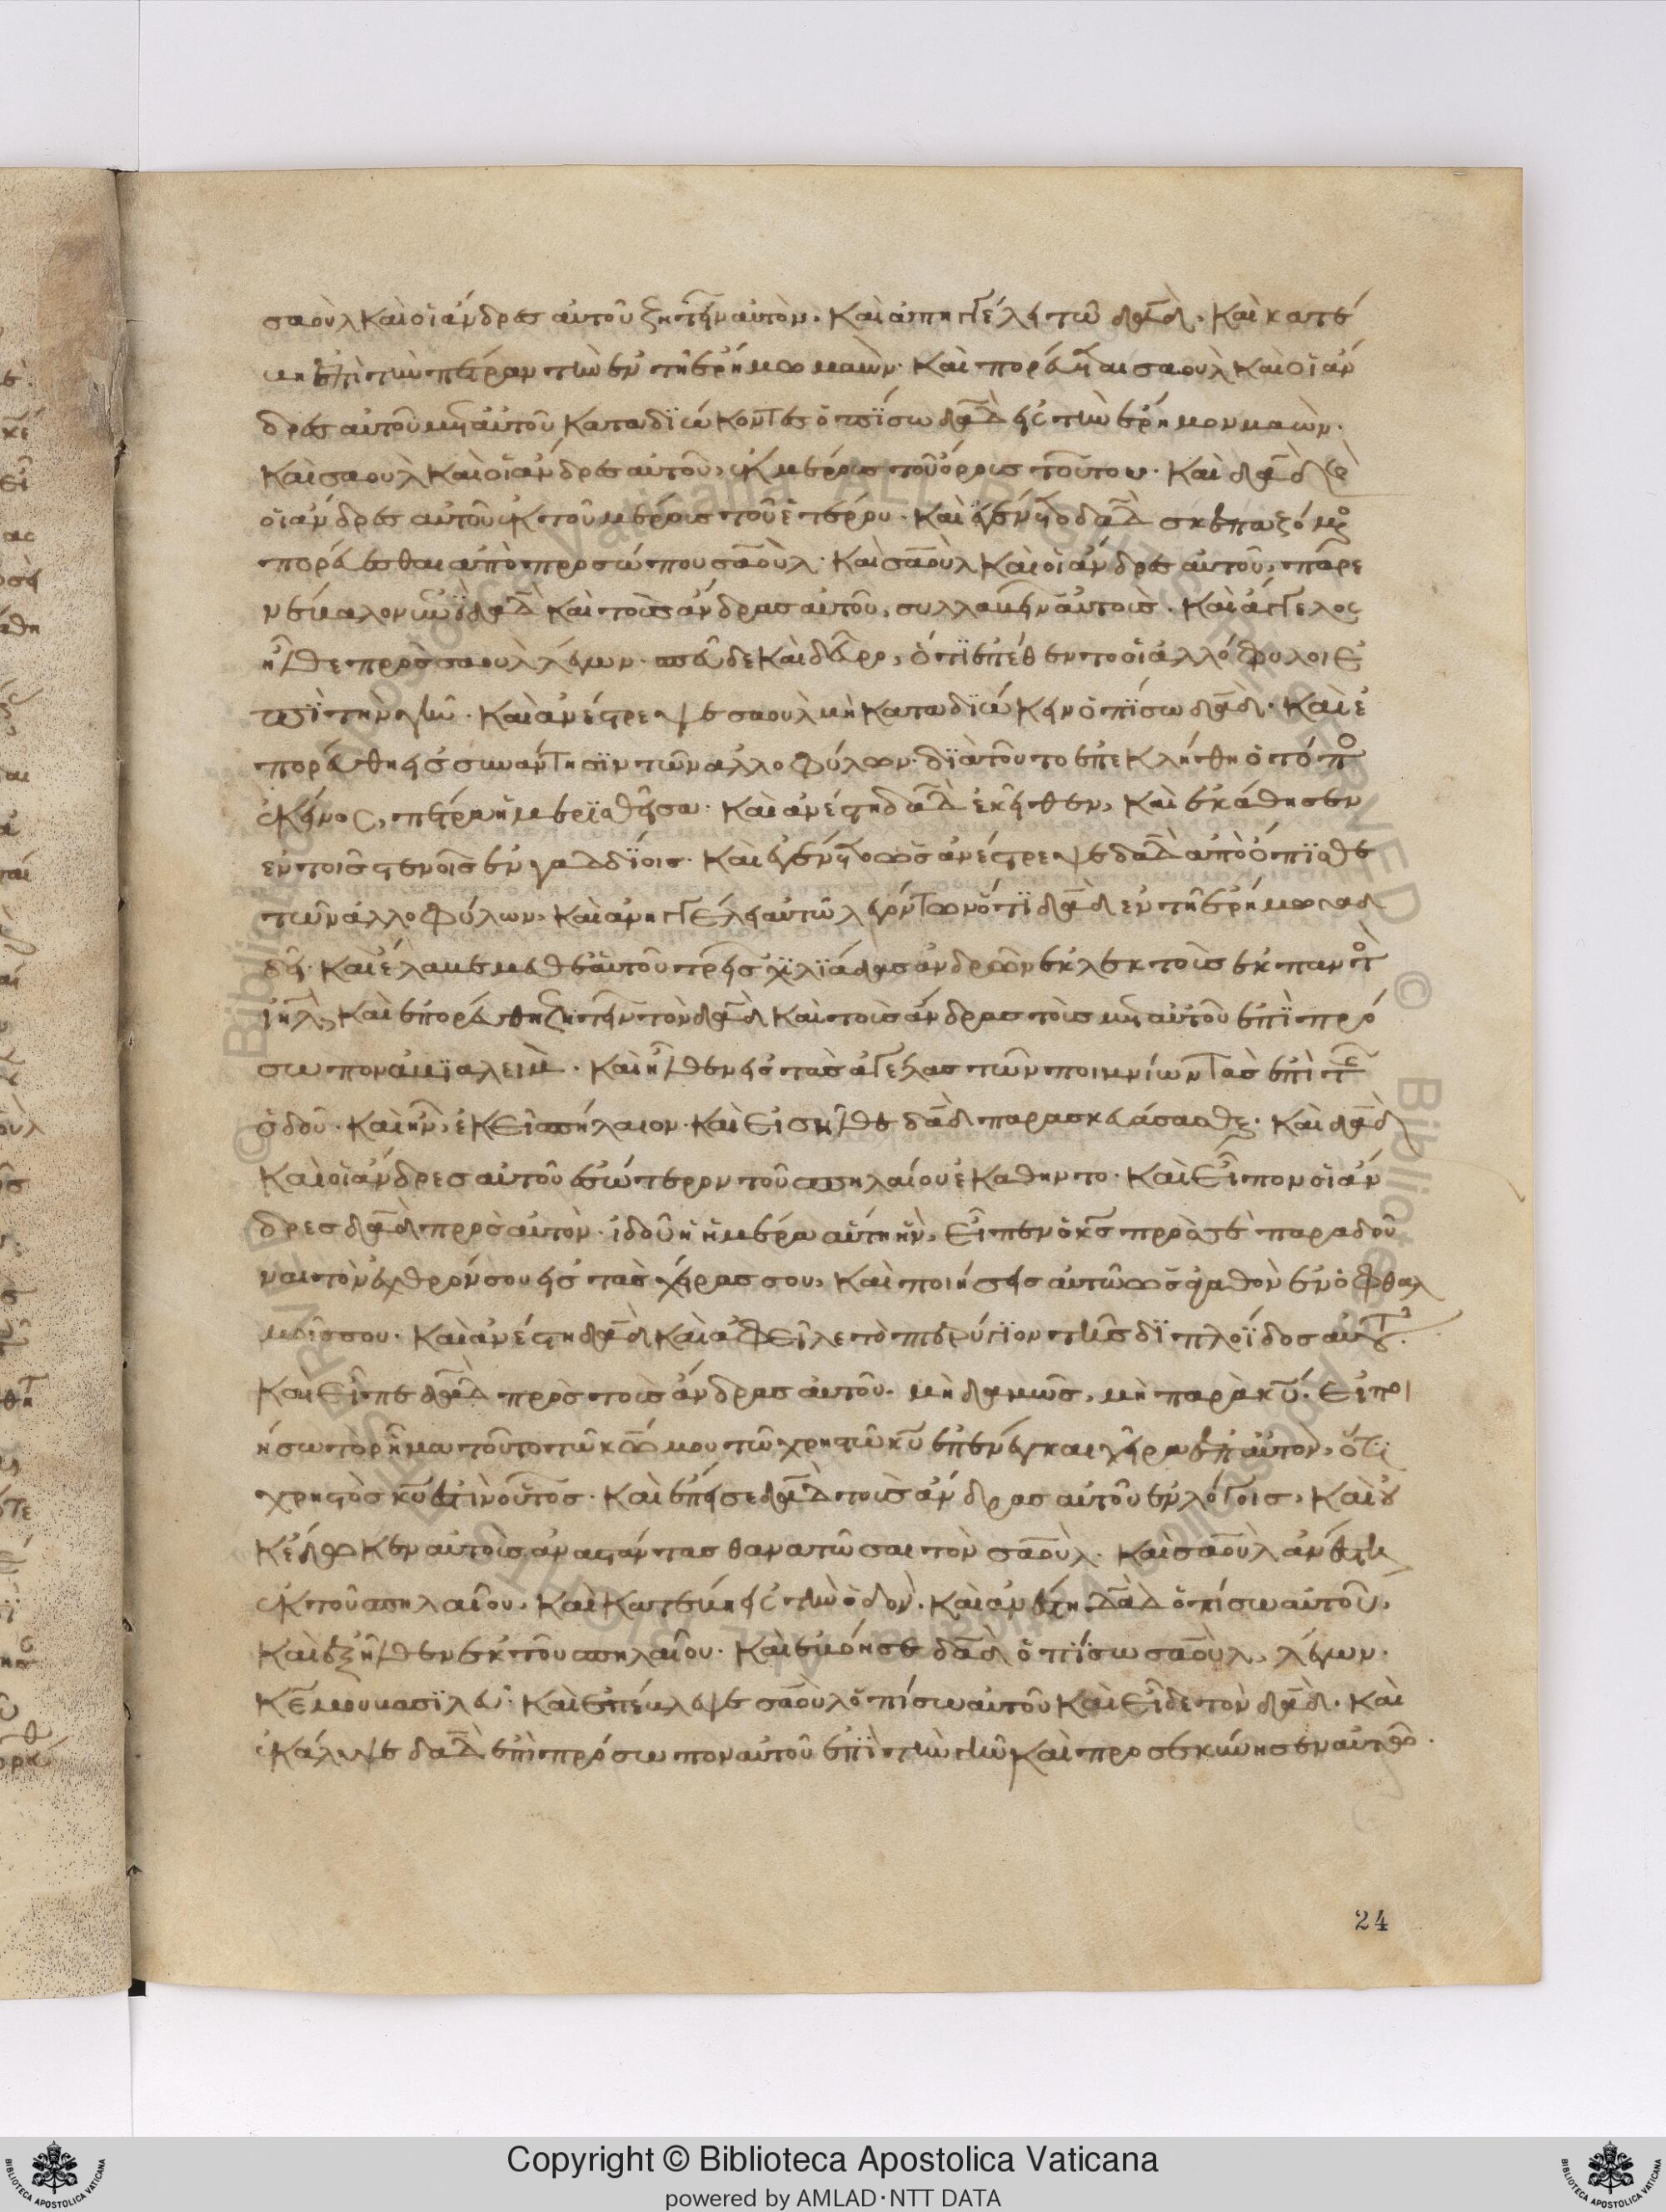 σαοὺλ καὶ οἱ ἄνδρες αὐτοῦ ζητεῖν αὐτόν. καὶ ἀπηγγέλη τῶ δᾱδ. καὶ κατέ
βη ἐπὶ τὴν πέτραν τὴν ἐν τῆ ἐρήμω μαὼν. καὶ πορεύεται σαοὺλ καὶ οἱ ἄν
δρες αὐτοῦ μετ αὐτοῦ καταδϊώκοντες ὀπϊσω δᾱδ εἰς τὴν ἔρημον μαὼν.
καὶ σαοὺλ καὶ οἱ ἄνδρες αὐτοῦ, ἐκ μέρους τοῦ ὄρους τούτου. καὶ δᾱδ καὶ
οἱ ἄνδρες αὐτοῦ ἐκ τοῦ μέρους τοῦ ἑτέρου. καὶ ἐγένετο δᾱδ σκεπαζόμενος
πορεύεσθαι ἀπὸ προσώπου σαοὺλ. καὶ σαοὺλ καὶ οἱ ἄνδρες αὐτοῦ, παρε
νέβαλον ἐπὶ δᾱδ καὶ τοὺς ἄνδρας αὐτοῦ, συλλαβεῖν αὐτούς. καὶ ἄγγελος
ἦλθε πρὸς σαοὺλ λέγων. σπεῦδε καὶ δεῦρο, ὅτϊ ἐπέθεντο οἱ ἀλλόφυλοι ἐ
πϊ τὴν γῆν. καὶ ἀνέστρεψε σαοὺλ μὴ καταδϊώκειν ὀπϊσω δᾱδ. καὶ ἐ
πορεύθη εἰς συνάντησϊν τῶν ἀλλοφύλων. δϊὰ τοῦτο ἐπεκλήθη ὁ τόπος
ἐκεῖνος, πέτρα ἡ μερϊσθεῖσα. καὶ ἀνέστη δᾱδ ἐκεῖθεν, καὶ ἐκάθησεν
ἐν τοῖς στενοῖς ἐνγαδδϊοις. καὶ ἐγένετο ὡς ἀνέστρεψε δᾱδ ἀπὸ ὄπϊσθε
τῶν ἀλλοφύλων, καὶ ἀνηγγέλει αὐτῶ λεγόντων ὅτϊ δᾱδ ἐν τῆ ἐρήμω γαδ
δεί. καὶ ἔλαβε μεθ ἑαυτοῦ τρεῖς χϊλϊάδας ἀνδρῶν ἐκλεκτοὺς ἐκ παντὸς
ιηλ, καὶ ἐπορεύθη ζητεῖν τὸν δᾱδ καὶ τοὺς ἄνδρας τοὺς μετ αὐτοῦ ἐπϊ πρό
καὶ ἦλθεν εἰς τὰς ἀγέλας τῶν ποιμνίων τὰς ἐπὶ τῆς
ὁδοῦ. καὶ ἦν ἐκεῖ σπήλαιον. καὶ εἰσῆλθε δᾱδ παρασκευάσασθαι. καὶ δᾱδ
καὶ οἱ ἄνδρες αὐτοῦ ἐσώτερον τοῦ σπηλαίου ἐκάθηντο. καὶ εἶπον οἱ ἄν
δρες δᾱδ πρὸς αὐτόν. ἰδοῦ ἡ ἡμέρα αὕτη ἣν, εἶπεν ὁ κς πρὸς σὲ παραδοῦ
ναι τὸν ἐχθρόν σου εἰς τὰς χεῖρας σου, καὶ ποιήσεις αὐτῶ ὡς ἀγαθὸν ἐν ὀφθαλ
μοῖς σου. καὶ ἀνέστη δᾱδ καὶ ἀφεῖλε τὸ πτερύγϊον τῆς δϊπλοΐδος αὐτοῦ.
καὶ εἶπε δᾱδ πρὸς τοὺς ἄνδρας αὐτοῦ. μηδαμῶς, μὴ παρὰ κυ. εἰ ποι
ήσω τὸ ρῆμα τοῦτο τῶ κω μου τῶ χριστῶ κυ ἐπενέγκαι χεῖρα ἐπ αὐτόν, ὅτι
χριστὸς κυ ἐστὶν οὗτος. καὶ ἔπεισε δᾱδ τοὺς ἄνδρας αὐτοῦ ἐν λόγοις, καὶ οὐ
κ ἔδωκεν αὐτοῖς ἀναστάντας θανατῶσαι τὸν σαοὺλ. καὶ σαοὺλ ἀνέστη
ἐκ τοῦ σπηλαίου, καὶ κατέβη εἰς τὴν ὁδόν. καὶ ἀνέστη δᾱδ ὀπίσω αὐτοῦ,
καὶ ἐξῆλθεν ἐκ τοῦ σπηλαίου. καὶ ἐβόησε δᾱδ ὀπϊσω σαοὺλ, λέγων.
κε μου βασϊλεῦ. καὶ ἐπέβλεψε σαοὺλ ὀπίσω αὐτοῦ καὶ εἶδε τὸν δᾱδ. καὶ
ἔκαλυψε δᾱδ ἐπὶ πρόσωπον αὐτοῦ ἐπϊ τὴν γῆν καὶ προσεκύνησεν αὐτῶ.
24
Copyright © Biblioteca Apostolica Vaticana
powered by AMLAD·NTT DATA